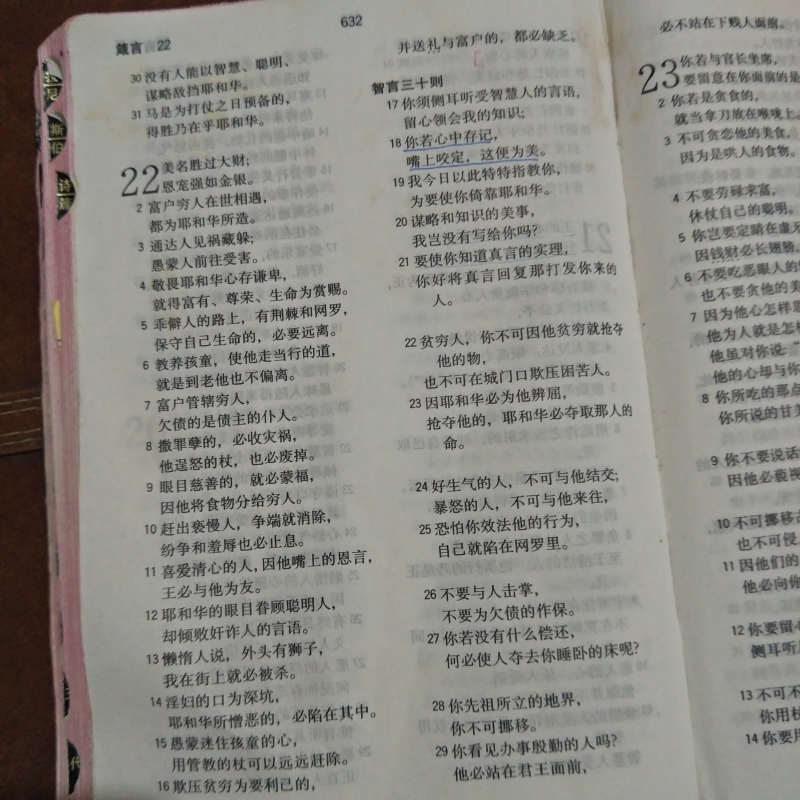 箴言 22
632
30 没有人能以智慧、聪明、
谋略敌挡耶和华。
31 马是为打仗之日预备的，
得胜乃在乎耶和华。
22 美名胜过大财；
恩宠强如金银。
2 富户穷人在世相遇，
都为耶和华所造。
3 通达人见祸藏躲；
愚蒙人前往受害。
4 敬畏耶和华心存谦卑，
就得富有、尊荣、生命为赏赐。
5 乖僻人的路上，有荆棘和网罗，
保守自己生命的，必要远离。
6 教养孩童，使他走当行的道，
就是到老他也不偏离。
7 富户管辖穷人，
欠债的是债主的仆人。
8 撒罪孽的，必收灾祸，
他逞怒的杖，也必废掉。
9 眼目慈善的，就必蒙福，
因他将食物分给穷人。
10 赶出亵慢人，争端就消除，
纷争和羞辱也必止息。
11 喜爱清心的人，因他嘴上的恩言，
王必与他为友。
12 耶和华的眼目眷顾聪明人，
却倾败奸诈人的言语。
13 懒惰人说，外头有狮子，
我在街上就必被杀。
14 淫妇的口为深坑，
耶和华所憎恶的，必陷在其中。
15 愚蒙迷住孩童的心，
用管教的杖可以远远赶除。
16 欺压贫穷为要利己的，
并送礼与富户的，都必缺乏。
智言三十则
17 你须侧耳听受智慧人的言语，
留心领会我的知识；
18 你若心中存记，
嘴上咬定，这便为美。
19 我今日以此特特指教你，
为要使你倚靠耶和华。
20 谋略和知识的美事，
我岂没有写给你吗？
21 要使你知道真言的实理，
你好将真言回复那打发你来的
人。
22 贫穷人，你不可因他贫穷就抢夺
他的物，
也不可在城门口欺压困苦人。
23 因耶和华必为他辨屈，
抢夺他的，耶和华必夺取那人的
命。
24 好生气的人，不可与他结交；
暴怒的人，不可与他来往，
25 恐怕你效法他的行为，
自己就陷在网罗里。
26 不要与人击掌，
不要为欠债的作保。
27 你若没有什么偿还，
何必使人夺去你睡卧的床呢？
28 你先祖所立的地界，
你不可挪移。
29 你看见办事殷勤的人吗？
他必站在君王面前，
必不站在下贱人面前。
23 你若与官长坐席，
要留意在你面前的是
2 你若是贪食的，
就当拿刀放在喉咙上。
3 不可贪恋他的美食，
因为是哄人的食物。
4 不要劳碌求富，
休仗自己的聪明。
5 你岂要定睛在虚无
因钱财必长翅膀，
6 不要吃恶眼人的
也不要贪他的美
7 因为他心怎样思
他为人就是怎样
他虽对你说：“
他的心却与你
8 你所吃的那点
你所说的甘美
9 你不要说话
因他必藐视
10 不可挪移古
也不可侵
11 因他们的
他必向你
12 你要留心
侧耳听
13 不可不
你用杖
14 你要用
诗
代